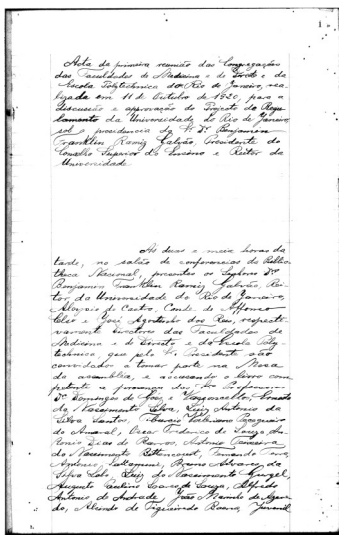 Acta da primeira reunião das Congregações
das Faculdades de Medicina e de Direito e da
Escola Polytechnica do Rio de Janeiro, rea-
lizada em 11 de Outubro de 1920, para a
discussão e approvação do Projecto do Regu-
lamento da Universidade do Rio de Janeiro,
sob a presidencia do Sr. Dr. Benjamin
Franklin Ramiz Galvão, Presidente do
Conselho Superior do Ensino e Reitor da
Universidade
As duas e meia horas da
tarde, no salão de conferencias da Biblio-
theca Nacional, presentes os Senhores Drs.
Benjamin Franklin Ramiz Galvão, Rei-
tor da Universidade do Rio de Janeiro,
Aloysio de Castro, Conde de Affonso
Celso e José Agostinho dos Reis, respecti-
vamente Directores das Faculdades de
Medicina e de Direito e da Escola Poly-
technica, que pelo Sr. Presidente são
convidados a tomar parte na Mesa
da assembléa, e accusando o livro com-
petente a presença dos Srs. Professores
Drs. Domingos de Góes e Vasconcellos, Ernesto
do Nascimento Silva, Luiz Antonio da
Silva Santos, Tiburcio Valeriano Pecegueiro
do Amaral, Oscar Frederico de Souza, An-
tonio Dias de Barros, Antonio
do Nascimento Bittencourt, Fernando Terra,
Bruno Alvares da
Silva Lobo, Luiz do Nascimento Gurgel,
Augusto Paulino Soares de Souza, Alfredo
Antonio de Andrade, João Marinho de Azeve-
do, Alcindo de Figueiredo Baena, Juvenil